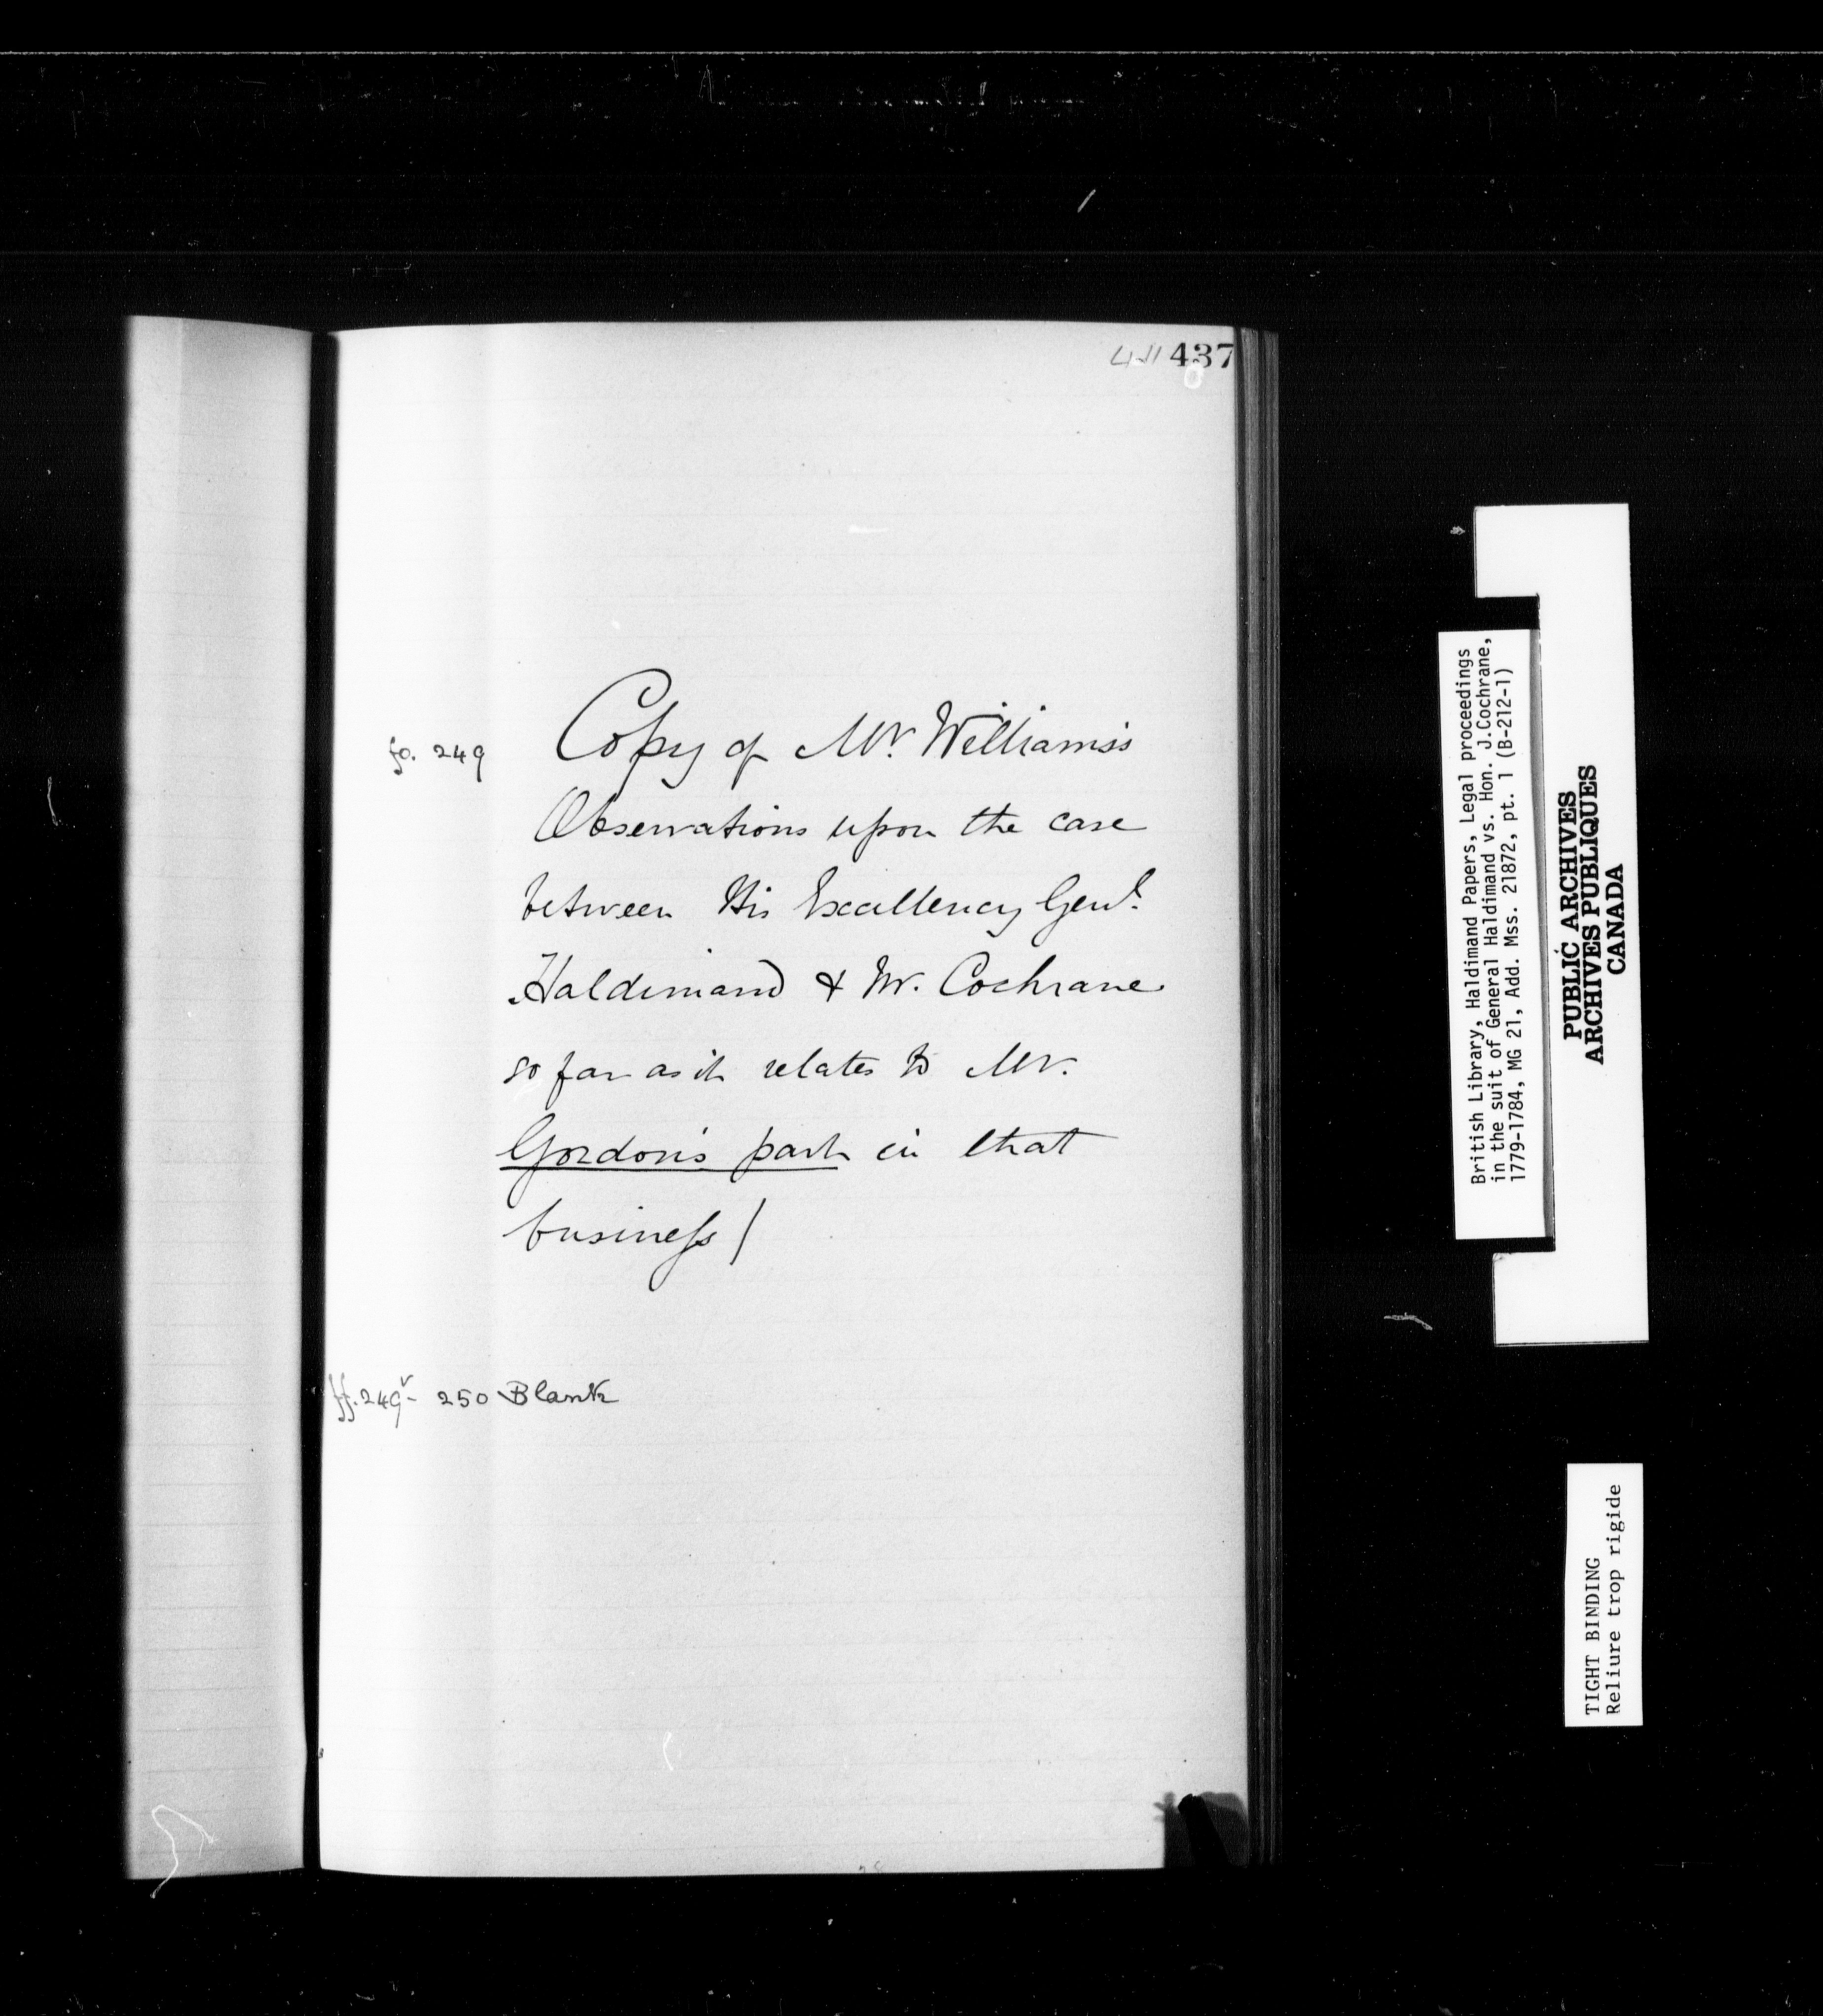 437
fo. 249 Copy of Mr. Williams's
Observations upon the case
between His Excellency Genl.
Haldimand & Mr. Cochrane
so far as it relates to Mr.
Gordon's part in that
business /
ff. 249v - 250 Blank
British Library, Haldimand Papers, Legal proceedings
in the suit of General Haldimand vs. Hon. J.Cochrane,
1779-1784, MG 21, Add. Mss. 21872, pt. 1 (B-212-1)
PUBLIC ARCHIVES
ARCHIVES PUBLIQUES
CANADA
TIGHT BINDING
Reliure trop rigide